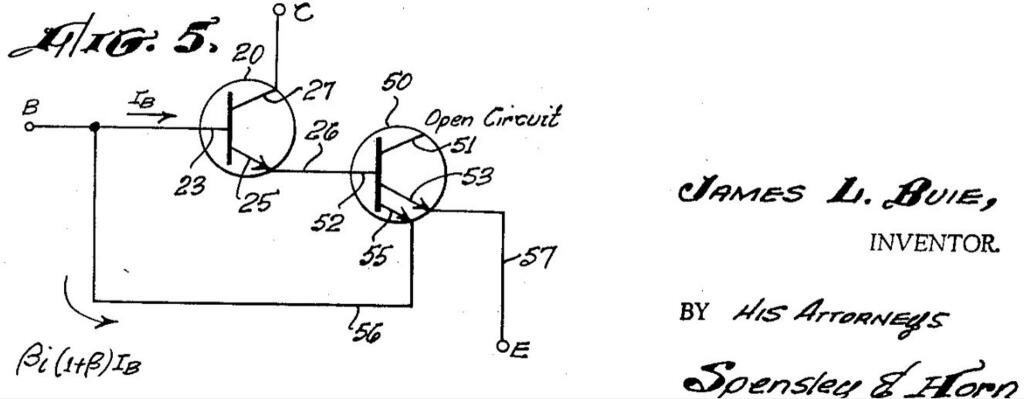 FIG. 5.
C
20
27
50
B
IB
Open Circuit
51
26
23
25
52
53
55
57
56
E
βi(1+β)IB
JAMES L. BUIE,
INVENTOR.
BY HIS ATTORNEYS
Spensley & Horn